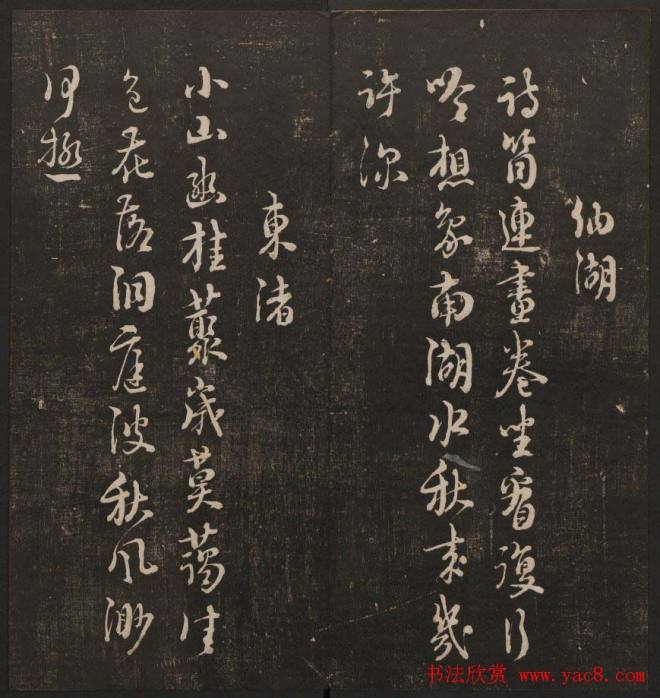 納湖
詩筒連畫卷坐看復行
吟想象南湖水秋来幾
許深
東渚
小山幽桂叢歲莫藹佳
色花落洞庭波秋風渺
何極
书法欣赏 www.yac8.com